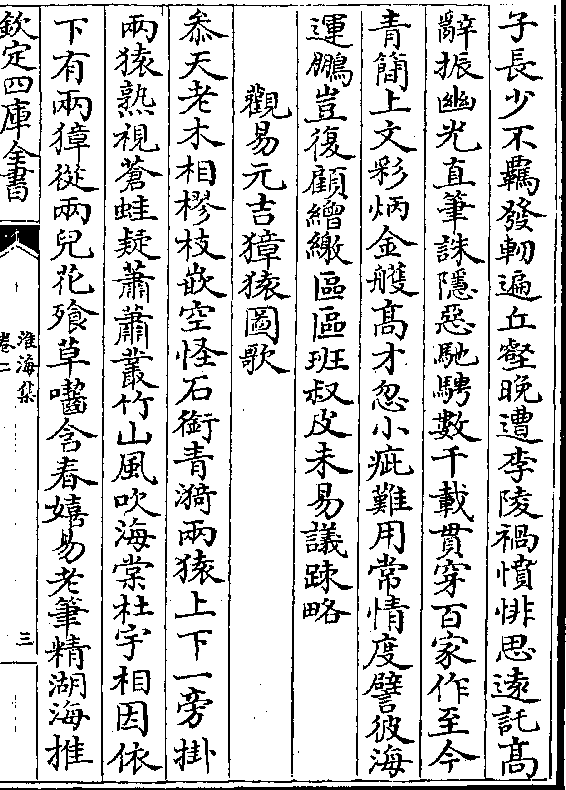 子長少不羈發軔遍丘壑晚遭李陵禍憤悱思遠託高
辭振幽光直筆誅隱惡馳騁數千載貫穿百家作至今
青簡上文彩炳金雘高才忽小疵難用常情度譬彼海
運鵬豈復顧繒繳區區班叔皮未易議踈略
觀易元吉獐猿圖歌
叅天老木相樛枝嵌空怪石銜青漪兩猿上下一旁掛
兩猿熟視蒼蛙疑蕭蕭叢竹山風吹海棠杜宇相因依
下有兩獐從兩兒花飱草囓含春嬉易老筆精湖海推
欽定四庫全書
淮海集
卷二
三